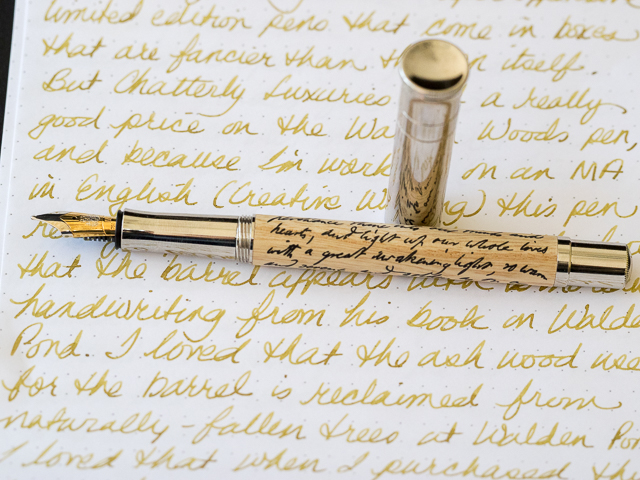 limited edition pens that come in boxes
that are fancier than the itself.
But Chatterly Luxuries a really
good price on the Wa Woods pen,
and because I'm work on an MA
in English (Creative W g) this pen
hearts, and light up our whole lives
with a great awakening light, so warm
that the barrel appears
handwriting from his book on Walde
Pond. I loved that the ash wood use
for the barrel is reclaimed from
naturally-fallen trees at Walden Pon
I loved that when I purchased this